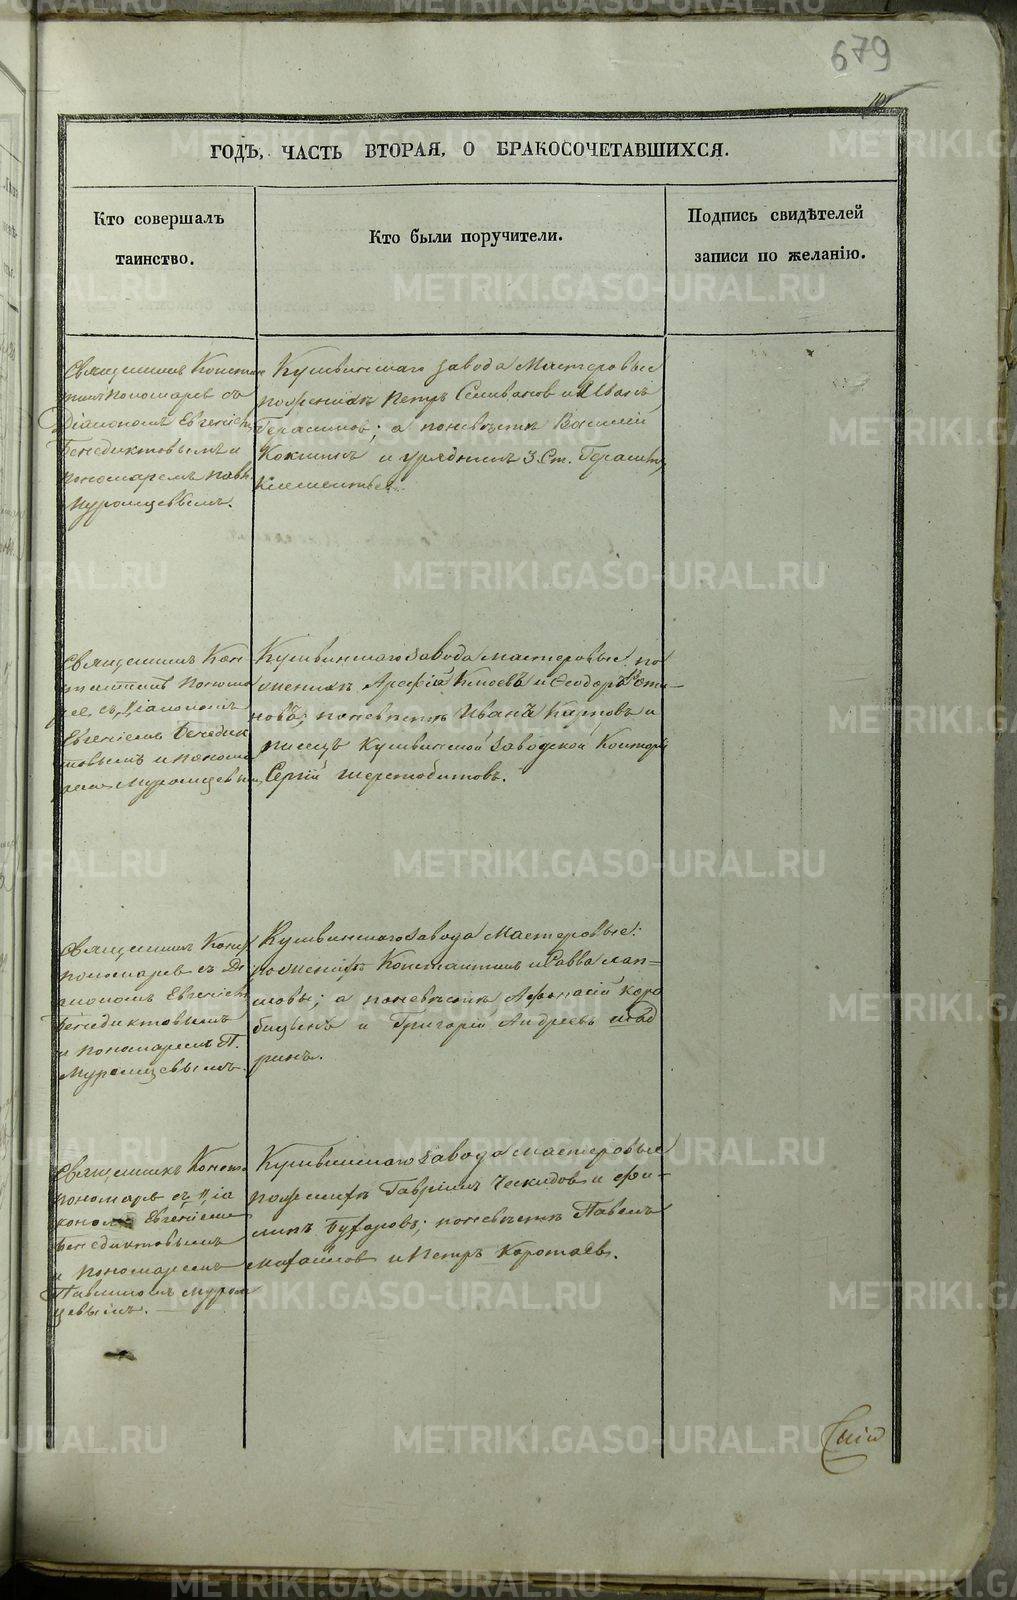 679
ГОДЪ, ЧАСТЬ ВТОРАЯ, О БРАКОСОЧЕТАВШИХСЯ.
Кто совершалъ
таинство.
Кто были поручители.
Подпись свидѣтелей
записи по желанію.
Священникъ Констан
тинъ Пономаревъ съ
Діакономъ Евгеніемъ
Бенедиктовымъ и
пономаремъ Павл.
Муромцевымъ.
Кушвинскаго завода Мастеровые
по женихѣ Петръ Селивановъ и Иванъ
Герасимовъ; а по невѣстѣ Василій
Кокшинъ и урядникъ 3. Ст. Герасимъ
Клементьевъ.
Священникъ Кон
стантинъ Понома
ревъ съ Діакономъ
Евгеніемъ Бенедик
товымъ и понома
ремъ Муромцевымъ
Кушвинскаго завода мастеровые: по
женихѣ Арефій и Ѳеодоръ
новъ; по невѣстѣ Иванъ Карповъ и
писецъ Кушвинской заводской Конторы
Сергій Шерстобитовъ.
Священникъ Конст
пономаревъ съ Ді
акономъ Евгеніемъ
Бенедиктовымъ
и пономаремъ П.
Муромцевымъ.
Кушвинскаго завода Мастеровые:
по женихѣ Константинъ и Савва Лап=
шовы; а по невѣстѣ Афанасій Коро
бицынъ и Григорій Андреевъ Шад
ринъ.
Священникъ Конст.
пономаревъ съ Діа
кономъ Евгеніемъ
Бенедиктовымъ
и пономаремъ
Павломъ Муром
цевымъ.
Кушвинскаго завода мастеровые
по женихѣ Гавріилъ Ческидовъ и Фи-
липъ Бухаровъ; по невѣстѣ Павелъ
Михайловъ и Петръ Коротаевъ.
METRIKI.GASO-URAL.RU